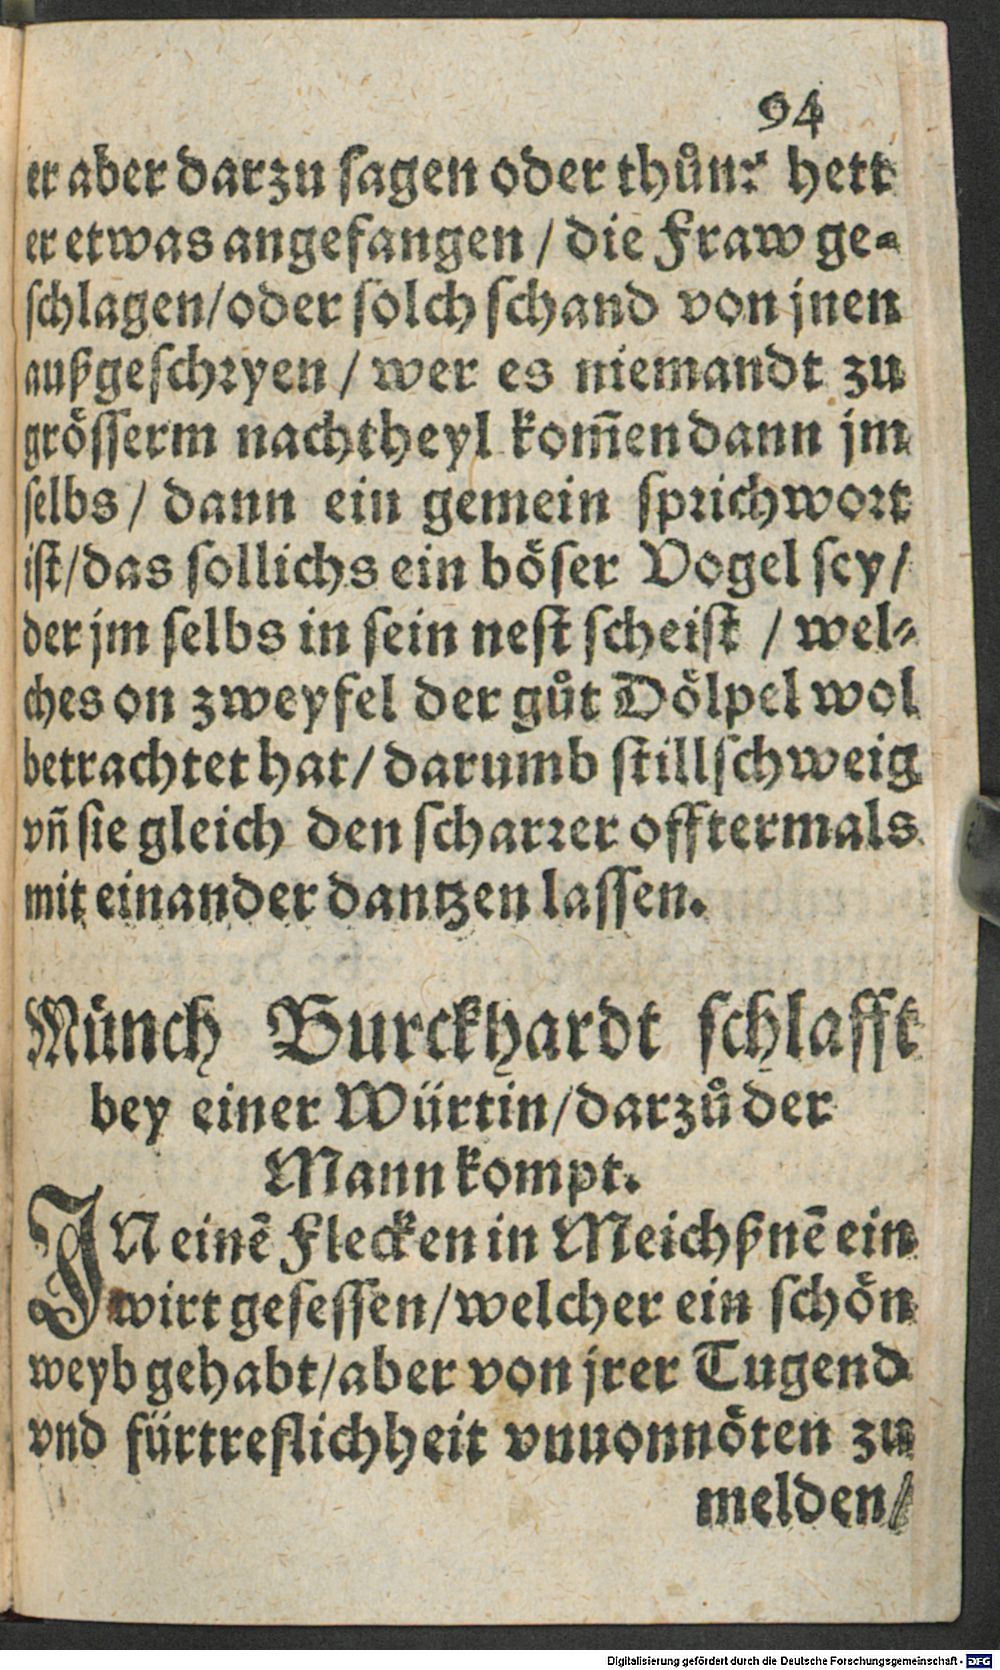 94
er aber darzu sagen oder thůn? hett
er etwas angefangen / die Fraw ge-
schlagen/oder solch schand von jnen
außgeschryen / wer es niemandt zu
grösserm nachtheyl kom̃en dann jm
selbs / dann ein gemein sprichwort
ist/das sollichs ein böser Vogel sey/
der jm selbs in sein nest scheist / wel-
ches on zweyfel der gůt Dölpel wol
betrachtet hat/ darumb stillschweig
vñ sie gleich den scharrer offtermals
mit einander dantzen lassen.
Münch Burckhardt schlafft
bey einer Würtin/darzů der
Mann kompt.
IN einẽ Flecken in Meichßnẽ ein
wirt gesessen/welcher ein schön
weyb gehabt/aber von jrer Tugend
vnd fürtreflichheit vnuonnöten zu
melden/
Digitalisierung gefördert durch die Deutsche Forschungsgemeinschaft - DFG